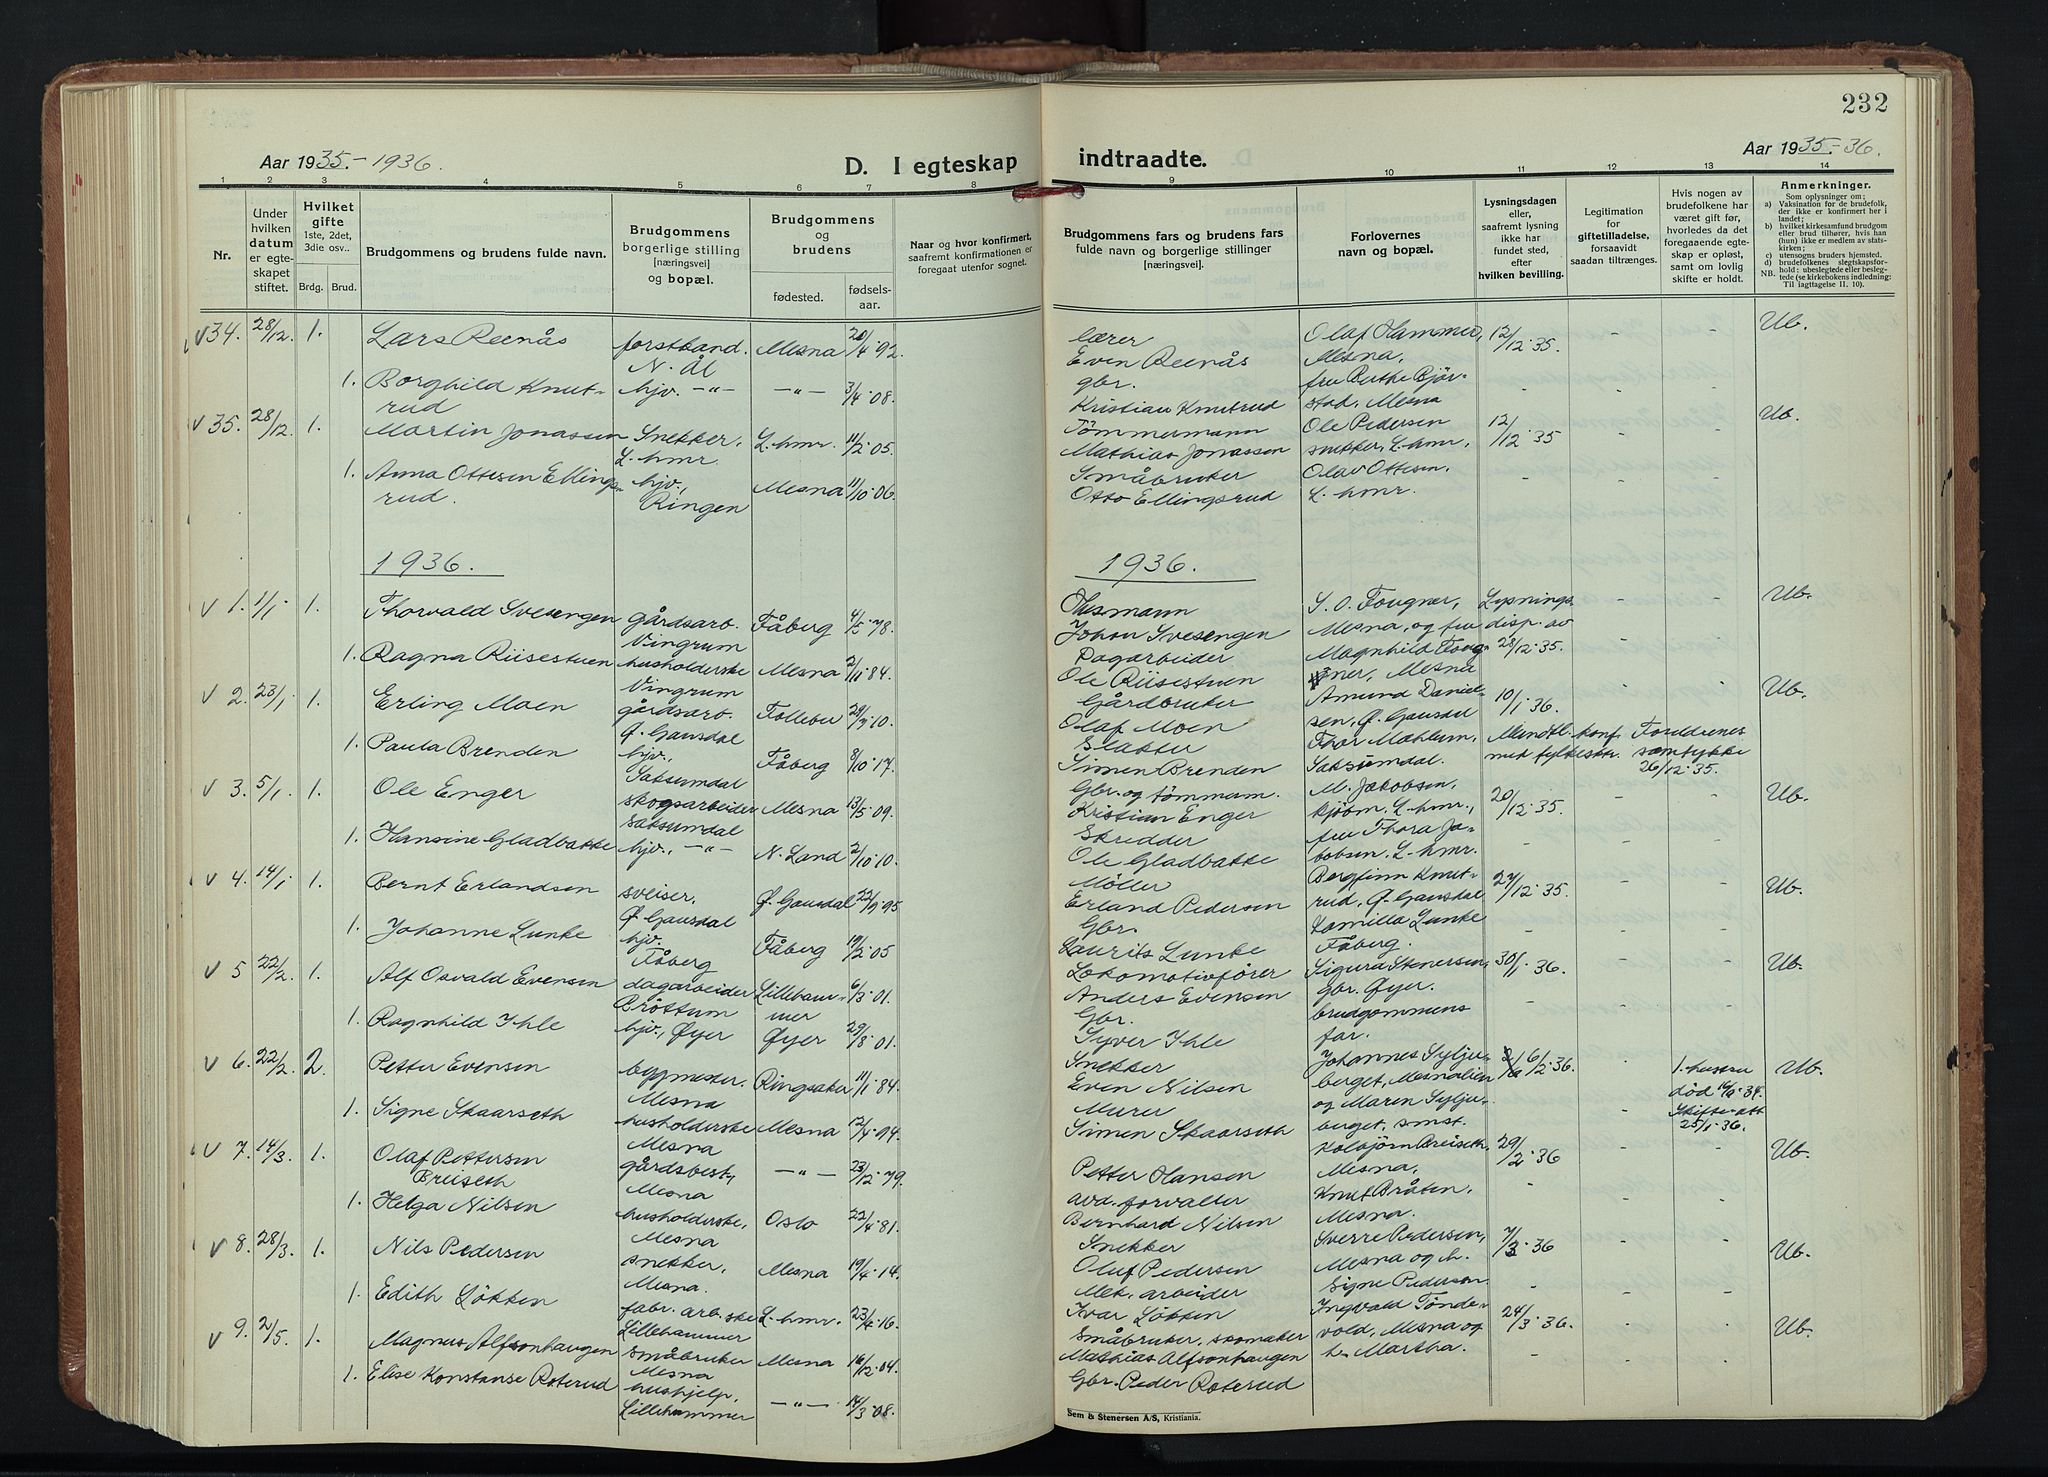 232
Aar 1935-1936.
D. I egteskap indtraadte.
Aar 1935-36.
1 2 3 4 5 6 7 8 9 10 11 12 13 14
Nr.
Under hvilken datum er egteskapet stiftet.
Hvilket gifte 1ste, 2det, 3die osv..
Brdg. Brud.
Brudgommens og brudens fulde navn.
Brudgommens borgerlige stilling [næringsvei] og bopæl.
Brudgommens og brudens
fødested. fødselsaar.
Naar og hvor konfirmert, saafremt konfirmationen er foregaat utenfor sognet.
Brudgommens fars og brudens fars fulde navn og borgerlige stillinger [næringsvei].
Forlovernes navn og bopæl.
Lysningsdagen eller, saafremt lysning ikke har fundet sted, efter hvilken bevilling.
Legitimation for giftetilladelse, forsaavidt saadan tiltrænges.
Hvis nogen av brudefolkene har været gift før, hvorledes da det foregaaende egteskap er opløst, samt om lovlig skifte er holdt.
Anmerkninger.
Som oplysninger om;
a) Vaksination for de brudefolk, der ikke er konfirmert her i landet;
b) hvilket kirkesamfund brudgom eller brud tilhører, hvis han (hun) ikke er medlem av statskirken;
c) utensogns bruders hjemsted.
d) brudefolkenes slegtskapsforhold: ubeslegtede eller beslegtede (se kirkebokens indledning: Til iagttagelse II. 10).
NB.
v 34. 28/12. 1. Lars Reenås forstkand. N. Ål Mesna 20/4.92. lærer Even Reenås Olaf Hammer, Mesna, 12/12.35. - - Ub.
1. Borghild Knutrud hjv. -"- -"- 3/4.08. gbr. Kristian Knutrud fru Berthe Bjørstad, Mesna - - -
v 35. 28/12. 1. Martin Jonassen Snekker, L.hmr. L.hmr. 11/2.05. Tømmermann Mathias Jonassen Ole Pedersen snekker, L.hmr. 12/12.35 - - Ub.
1. Anna Ottesen Ellingsrud. hjv., Ringen Mesna 11/10.06. Småbruker Otto Ellingsrud Olav Ottesen. L.hmr. - -
1936. 1936.
v 1. 1/1. 1. Thorvald Svesengen gårdsarb. Vingrum Fåberg 4/5.78. Husmann Johan Svesengen S. O. Fougner, Mesna, og fru Lysnings disp. av 28/12.35. - - Ub.
1. Ragna Riisestuen husholderske Vingrum Mesna 2/11.84. Dagarbeider Ole Riisestuen Magnhild Fougner, Mesna - -
v 2. 23/1 1. Erling Moen gårdsarb. Ø. Gausdal Follebu 28/3.10. Gårdbruker Olaf Moen Amund Danielsen, Ø. Gausdal 10/1.36. - - Ub.
1. Paula Brenden hjv., Saksumdal Fåberg 8/10.17. Slakter Simen Brenden Thor Mæhlum, Saksumdal. Mundtl. konf. med fylkesktr. Foreldrenes samtykke 26/12.35.
v 3. 5/1 1. Ole Enger skogsarbeider Saksumdal Mesna 13/5.09. Gbr. og tømmerm. Kristian Enger M. Jakobsen, kjøbm., L.hmr., 20/12.35. - - Ub.
1. Hansine Gladbakke hjv., -"- N. Land 2/10.10. Skredder Ole Gladbakke fru Thora Jakobsen. L.hmr. - -
v 4. 14/1 1. Bernt Erlandsen sveiser. Ø. Gausdal Ø. Gausdal 22/9.95 Møller Erland Pedersen Bergfinn Knutrud, Ø. Gausdal 27/12.35. - - Ub.
1. Johanne Lunke hjv. Fåberg Fåberg 19/2.05 Gbr. Laurits Lunke Kamilla Lunke Fåberg. - - -
v 5 22/2. 1. Alf Osvald Evensen dagarbeider Brøttum Lillehammer 6/3.01. Lokomotivfører Anders Evensen Sigurd Stenersen, gbr. Øyer. 30/1.36. - - Ub.
1. Ragnhild Ihle hjv., Øyer Øyer 29/8.01. Gbr. Syver Ihle brudgommens far. - - -
v 6. 22/2. 2. Petter Evensen bygmester. Mesna Ringsaker 11/1.84. Snekker Even Nilsen Johannes Syljuberget, Mesnalien 6/2.36. - 1. hustru død 34. Skifte-att 25/1.36. Ub.
1. Signe Skaarseth husholderske Mesna Mesna 12/4.94. Murer Simen Skaarseth og Maren Syljuberget, smst. -
v 7. 14/3. 1. Olaf Pettersen Briiseth gårdsbest., Mesna -"- 23/12.79. Petter Hansen Kolbjørn Briiseth, Mesna, 29/2.36 - - Ub.
1. Helga Nilsen husholderske, Mesna Oslo 22/4.81. avd. forvalter Bernhard Nilsen Knut Bråten, Mesna. - - -
v 8. 28/3. 1. Nils Pedersen snekker, Mesna. Mesna 19/4.14. Snekker Oluf Pedersen Sverre Pedersen, Mesna og h. 7/3.36 - - Ub.
1. Edith Løkken fabr. arb.ske Lillehammer L.hmr. 23/4.16. Mek. arbeider Ivar Løkken Signe Pedersen - - -
v 9. 2/5. 1. Magnus Alfsonhaugen småbruker Mesna Mesna 16/2.04. Småbruker, skomaker Mathias Alfsonhaugen Ingvald Tøndevold, Mesna og 24/3.36. - - Ub.
1. Elise Konstanse Roterud hushjelp, Lillehammer -"- 14/3.08. Gbr. Peder Roterud h. Martha. - - -
Sem & Stenersen A/S, Kristiania.